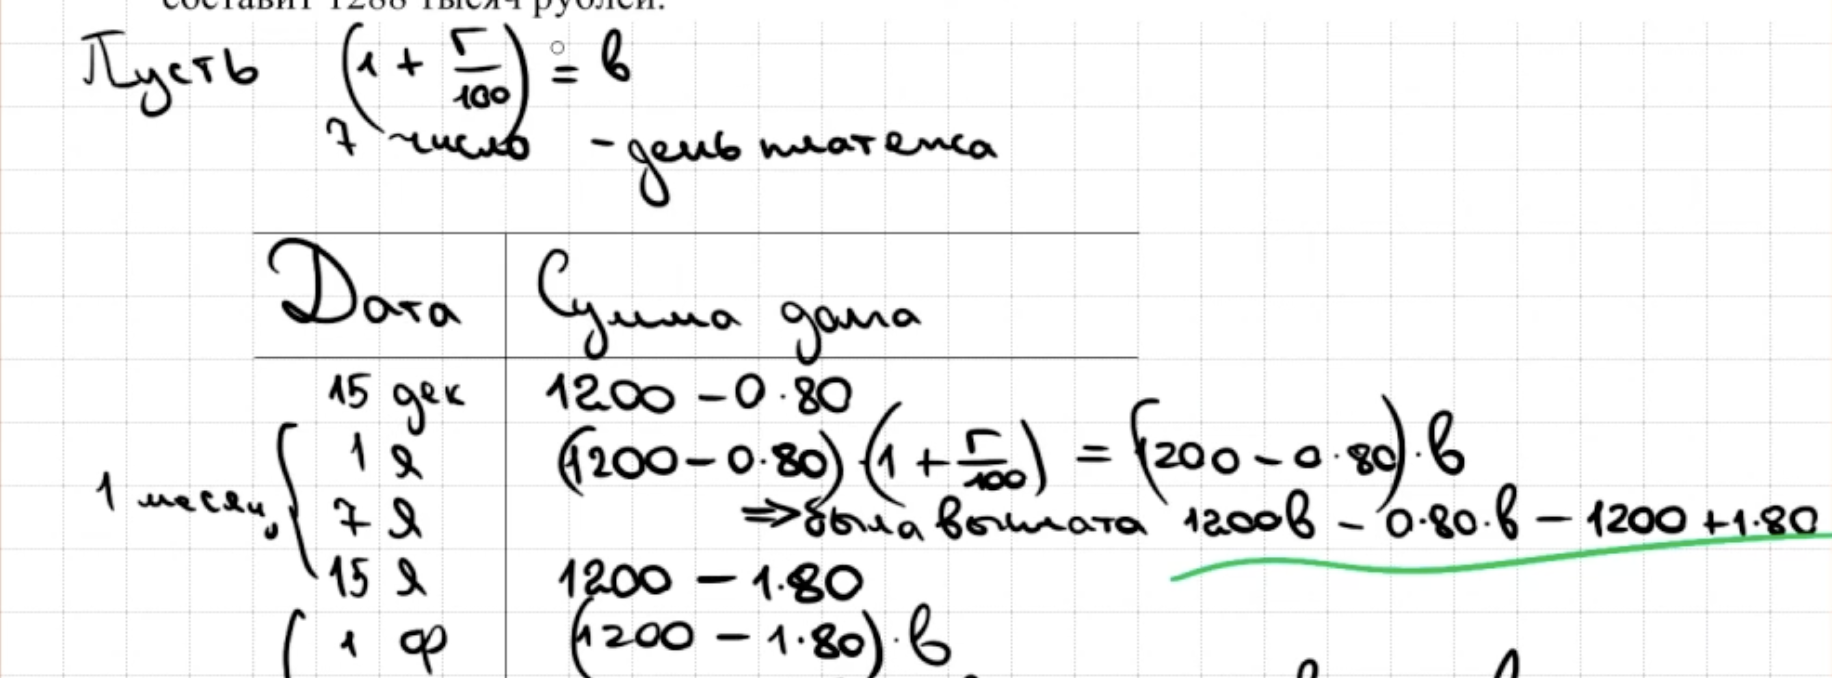 составит 1288 тысяч рублей.
Пусть (1 + r/100) = b
7 число - день платежа
Дата Сумма долга
15 дек 1200 - 0·80
1 я (1200 - 0·80)·(1 + r/100) = (1200 - 0·80)·b
1 месяц 7 я ⇒ была выплата 1200b - 0·80·b - 1200 + 1·80
15 я 1200 - 1·80
1 ф (1200 - 1·80)·b